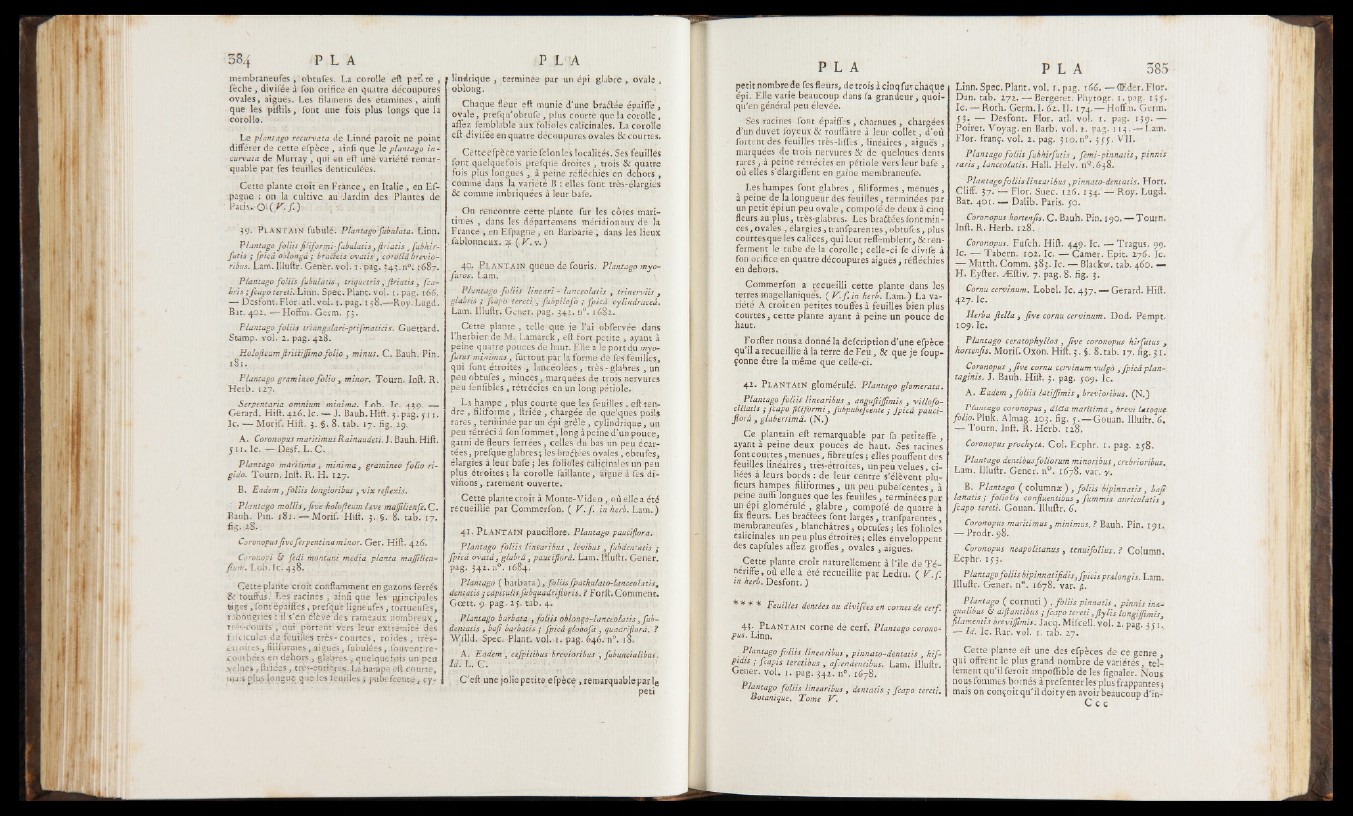 384 P L A
membraneuses, obtuses. La corolle est petite,
sèche, divisée à son orifice en quatre découpures
ovales, aiguës. Les filamens des étamines, ainsi
que les pistils, sont une fois plus longs que la
corolle.
Le plantago recurvata de Linné paroît ne point
différer de cette espèce, ainsi que le plantago in-
curvata de Murray, qui en est une variété remar-
quable par ses feuilles denticulées.
Cette plante croît en France, en Italie, en Es-
pagne : on la cultive au Jardin des Plantes de
Paris. (V. s.)
39. PLANTAIN subulé. Plantago subulata. Linn.
Plantago foliis filiformi-subulatis, striatis, subhir-
sutis ; spicâ oblongâ ; bracteis ovatis, corollâ brevio-
ribus. Lam. Illustr. Gener. vol. 1. pag. 343. n°. 1687.
Plantago foliis subulatis, triquetris, striatis, sca-
bris ; scapo tereti. Linn. Spec. Plant. vol. 1. pag. 166.
— Desfont. Flor. atl. vol. 1. pag. 138. — Roy. Lugd.
Bat. 402. — Hoffm. Germ. 53.
Plantago foliis triangulari-prismaticis. Guettard.
Stamp. vol. 2. pag. 428.
Holosteum strictissimo folio, minus. C. Bauh. Pin.
181.
Plantago gramineo folio, minor. Tourn. Inst. R.
Herb. 127.
Serpentaria omnium minima. Lob. Ic. 439. —
Gerard. Hist. 426. Ic. — J. Bauh. Hist. 3. pag. 511.
Ic. — Moris. Hist. 3. §. 8. tab. 17. fig. 29.
A. Coronopus maritimus Rainaudeti. J. Bauh. Hist.
511. Ic. — Desf. L. C.
Plantago maritima, minima, gramineo folio ri-
gido. Tourn. Inst. R. H. 127.
B. Eadem, foliis longioribus, vix reflexis.
Plantago mollis, sive holosteum lave massiliense. C.
Bauh. Pin. 181. — Moris. Hist. 3. §. 8. tab. 17.
fig. 28.
Coronopus sive serpentina minor. Ger. Hist. 426.
Coronopi & sedi montani media planta massilien-
sium. Lob. Ic. 438.
Cette plante croît constamment en gazons serrés
& touffus. Les racines, ainsi que les principales
tiges, sont épaisses, presque ligneuses, tortueuses,
rabougries : il s'en élève des rameaux nombreux,
très-courts, qui portent vers leur extrémité des
fascicules de feuilles très-courtes, roides, très-
étroites, filiformes, aiguës, subulées, souvent re-
courbées en dehors, glabres, quelquefois un peu
velues, striées, très-entières. La hampe est courte,
mais plus longue que les feuilles ; pubescente, cy-
P L A
lindrique, terminée par un épi glabre, ovale,
oblong.
Chaque fleur est munie d'une bractée épaisse,
ovale, presqu'obtuse, plus courte que la corolle,
assez semblable aux folioles calicinales. La corolle
est divisée en quatre découpures ovales & courtes.
Cette espèce varie selon les localités. Ses feuilles
sont quelquefois presque droites, trois & quatre
fois plus longues, à peine réfléchies en dehors,
comme dans la variété B : elles sont très-élargies
& comme imbriquées à leur base.
On rencontre cette plante sur les côtes mari-
times, dans les départemens méridionaux de la
France, en Espagne, en Barbarie, dans les lieux
sablonneux. ♃ (V. v.)
40. PLANTAIN queue de souris. Plantago myo-
suros. Lam.
Plantago foliis lineari-lanceolatis, trinerviis,
glabris ; scapo tereti, subpiloso ; spicâ cylindraceâ.
Lam. Illustr. Gener. pag. 342. n°. 1682.
Cette plante, telle que je l'ai observée dans
l'herbier de M. Lamarck, est fort petite, ayant à
peine quatre pouces de haut. Elle a le port du myo-
surus minimus, surtout par la forme de ses feuilles,
qui sont étroites, lancéolées, très-glabres, un
peu obtuses, minces, marquées de trois nervures
peu sensibles, rétrécies en un long pétiole.
La hampe, plus courte que les feuilles, est ten-
dre, filiforme, striée, chargée de quelques poils
rares, terminée par un épi grêle, cylindrique, un
peu rétréci à son sommet, long à peine d'un pouce,
garni de fleurs serrées, celles du bas un peu écar-
tées, presque glabres ; les bractées ovales, obtuses,
élargies à leur base ; les folioles calicinales un peu
plus étroites ; la corolle saillante, aiguë à ses di-
visions, rarement ouverte.
Cette plante croît à Monte-Video, où elle a été
recueillie par Commerson. (V. s. in herb. Lam.)
41. PLANTAIN pauciflore. Plantago pauciflora.
Plantago foliis linearibus, levibus, subdentatis ;
spicâ ovatâ, glabrâ, pauciflorâ. Lam. Illustr. Gener.
pag. 342. n°. 1684.
Plantago (barbata), foliis spathulato-lanceolatis,
dentatis ; capitulis subquadrifloris. ? Forst. Comment.
Goett. 9. pag. 25. tab. 4.
Plantago barbata, foliis oblongo-lanceolatis, sub-
dentatis, basi barbatis ; spicâ globosâ, quadriflorâ. ?
Willd. Spec. Plant. vol. 1. pag. 646. n°. 18.
A. Eadem, cespitibus brevioribus, subuncialibus.
Id. L. C.
C'est une jolie petite espèce, remarquable par le
peti
P L A
petit nombre de ses fleurs, de trois à cinq sur chaque
épi. Elle varie beaucoup dans sa grandeur, quoi-
qu'en général peu élevée.
Ses racines sont épaisses, charnues, chargées
d'un duvet soyeux & roussâtre à leur collet, d'où
sortent des feuilles très-lisses, linéaires, aiguës,
marquées de trois nervures & de quelques dents
rares, à peine rétrécies en pétiole vers leur base,
où elles s'élargissent en gaîne membraneuse.
Les hampes sont glabres, filiformes, menues,
à peine de la longueur des feuilles, terminées par
un petit épi un peu ovale, composé de deux à cinq
fleurs au plus, très-glabres. Les bractées sont min-
ces, ovales, élargies, transparentes, obtuses, plus
courtes que les calices, qui leur ressemblent, & ren-
ferment le tube de la corolle ; celle-ci se divise à
son orifice en quatre découpures aiguës, réfléchies
en dehors.
Commerson a recueilli cette plante dans les
terres magellaniques. (V. s. in herb. Lam.) La va-
riété A croît en petites touffes à feuilles bien plus
courtes, cette plante ayant à peine un pouce de
haut.
Forster nous a donné la description d'une espèce
qu'il a recueillie à la terre de Feu, & que je soup-
çonne être la même que celle-ci.
42. PLANTAIN gloméruié. Plantago glomerata.
Plantago foliis linearibus, angustissimis, villoso-
ciliatis ; scapo filiformi, subpubescente ; spicâ pauci-
florâ, glaberrimâ. (N.)
Ce plantain est remarquable par sa petitesse,
ayant à peine deux pouces de haut. Ses racines
sont courtes, menues, fibreuses ; elles poussent des
feuilles linéaires, très-étroites, un peu velues, ci-
liées à leurs bords : de leur centre s'élèvent plu-
sieurs hampes filiformes, un peu pubescentes, à
peine aussi longues que les feuilles, terminées par
un épi gloméruié, glabre, composé de quatre à
six fleurs. Les bractées sont larges, transparentes,
membraneuses, blanchâtres, obtuses ; les folioles
calicinales un peu plus étroites ; elles enveloppent
des capsules assez grosses, ovales, aiguës.
Cette plante croît naturellement à l'île de Té-
nériffe, où elle a été recueillie par Ledru. (V. s.
in herb. Desfont.)
**** Feuilles dentées ou divisées en cornes de cerf.
43. PLANTAIN corne de cerf. Plantago corono-
pus. Linn.
Plantago foliis linearibus, pinnato-dentatis, his-
pidis ; scapis teretibus, ascendentibus. Lam. Illustr.
Gener. vol. 1. pag. 342. n°. 1678.
Plantago foliis linearibus, dentatis ; scapo tereti.
Botanique. Tome V.
P L A 385
Linn. Spec. Plant. vol. 1. pag. 166. — Œder. Flor.
Dan. tab. 272. — Bergeret. Phytogr. 1. pag. 135.
Ic. — Roth. Germ. I. 62. II. 174. — Hoffm. Germ.
53. — Desfont. Flor. atl. vol. 1. pag. 139. —
Poiret. Voyag. en Barb. vol. 2. pag. 113. — Lam.
Flor. franç. vol. 2. pag. 310. n°. 355. VII.
Plantago foliis subhirsutis, semi-pinnatis, pinnis
raris, lanceolatis. Hall. Helv. n°. 658.
Plantago foliis linearibus, pinnato-dentatis. Hort.
Cliff. 37. — Flor. Suec. 126. 134. — Roy. Lugd.
Bat. 401. — Dalib. Paris. 50.
Coronopus hortensis. C. Bauh. Pin. 190. — Tourn.
Inst. R. Herb. 128.
Coronopus. Fusch. Hist. 449. Ic. — Tragus. 99.
Ic. — Tabern. 102. Ic. — Camer. Epit. 276. Ic.
— Matth. Comm. 383. Ic. — Blackw. tab. 460. —
H. Eyster. Æstiv. 7. pag. 8. fig. 3.
Cornu cervinum. Lobel. Ic. 437. — Gerard. Hist.
427. Ic.
Herba stella, sive cornu cervinum. Dod. Pempt.
109. Ic.
Plantago ceratophyllos, sive coronopus hirsutus,
hortensis. Moris. Oxon. Hist. 3. §. 8. tab. 17. fig. 31.
Coronopus, sive cornu cervinum vulgò, spicâ plan-
taginis. J. Bauh. Hist. 3. pag. 509. Ic.
A. Eadem, foliis latissimis, brevioribus. (N.)
Plantago coronopus, dicta maritima, brevi latoque
folio. Pluk. Almag. 103. fig. 5. — Gouan. Illustr. 6.
— Tourn. Inst. R. Herb. 128.
Coronopus prochyta. Col. Ecphr. 1. pag. 258.
Plantago dentibus foliorum minoribus, crebrioribus.
Lam. Illustr. Gener. n°. 1678. var. γ.
B. Plantago (columnæ), foliis bipinnatis, basi
lanatis ; foliolis confluentibus, summis auriculatis,
scapo tereti. Gouan. Illustr. 6.
Coronopus maritimus, minimus. ? Bauh. Pin. 191.
— Prodr. 98.
Coronopus neapolitanus, tenuifolius. ? Column.
Ecphr. 153.
Plantago foliis bipinnatifidis, spicis pralongis. Lam.
Illustr. Gener. n°. 1678. var. β.
Plantago (cornuti), foliis pinnatis, pinnis ina-
qualibus & distantibus ; scapo tereti, stylis longissimis,
filamentis brevissimis. Jacq. Miscell. vol. 2. pag. 351.
— Id. Ic. Rar. vol. 1. tab. 27.
Cette plante est une des espèces de ce genre,
qui offrent le plus grand nombre de variétés, tel-
lement qu'il seroit impossible de les signaler. Nous
nous sommes bornés à présenter les plus frappantes ;
mais on conçoit qu'il doit y en avoir beaucoup d'in-
C c c